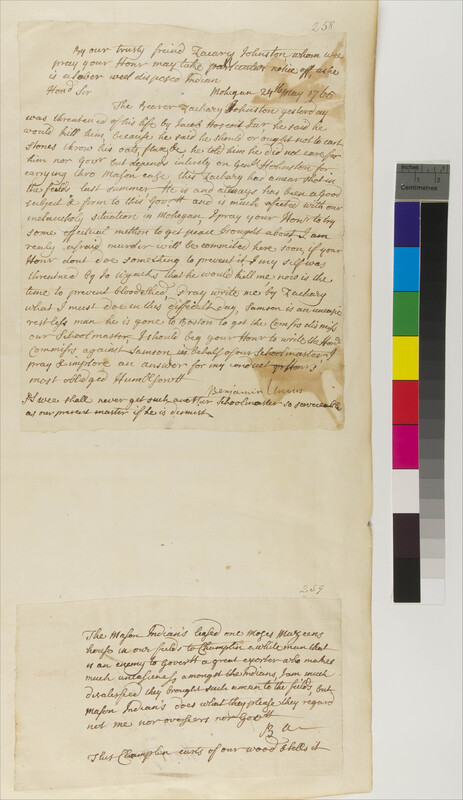 258
By our trusty freind Zacary Johnston whom wee
pray your Honr may take particular notice off, as he
is a sober weel disposed Indian
Mohegan 24th May 1766
Hond Sir
The Bearer Zachary Johnston yesterday
was threatened of his life by Jacob Hoscutt Junr, he said he
would kill him, because he said he should or ought not to cast
stones throw his oats, he told him he did not care for
him nor Govr but depends intirely on Genll Johnston for
carrying thro Mason case, this Zachary has a near shot in
the field last summer He is and always has been a good
subject & firm to this Govtt and is much afected with our
melancholy situation in Mohegan, I pray your Honr to try
some effectual method to get peace brought about, I am
realy afraid murder will be commited here soon, if your
Honr dont doe something to prevent it I my self was
threatned by Jo that he would kill me now is the
time to prevent bloodshed, I pray write me by Zachary
what I must doe in this difficult day, Samson is an uneasie
restless man he is gone to Boston to get the Comiss dismiss
our Schoolmaster I should beg your Honr to write the Hond
Commiss against Samson in behalf of our Schoolmaster I
pray & implore an answer for my conduct yr Honrs
most obledged Humle Servtt
Benjamin Uncas
PS wee shall never get such another Schoolmaster so serviceable
as our present master if he is dismist
259
The Mason Indian's leased one Moses Mazeens
house in our fields to Champlin a white man that
is an enemy to Governt a great exorter who makes
much uneasiness amongst the Indians, I am much
disatisfied they brought such a man to the fields but
Mason Indian's does what they please they regard
not me nor overseers nor Govtt
B U
This Champlin carts of our wood & sells it
Inches
Centimetres